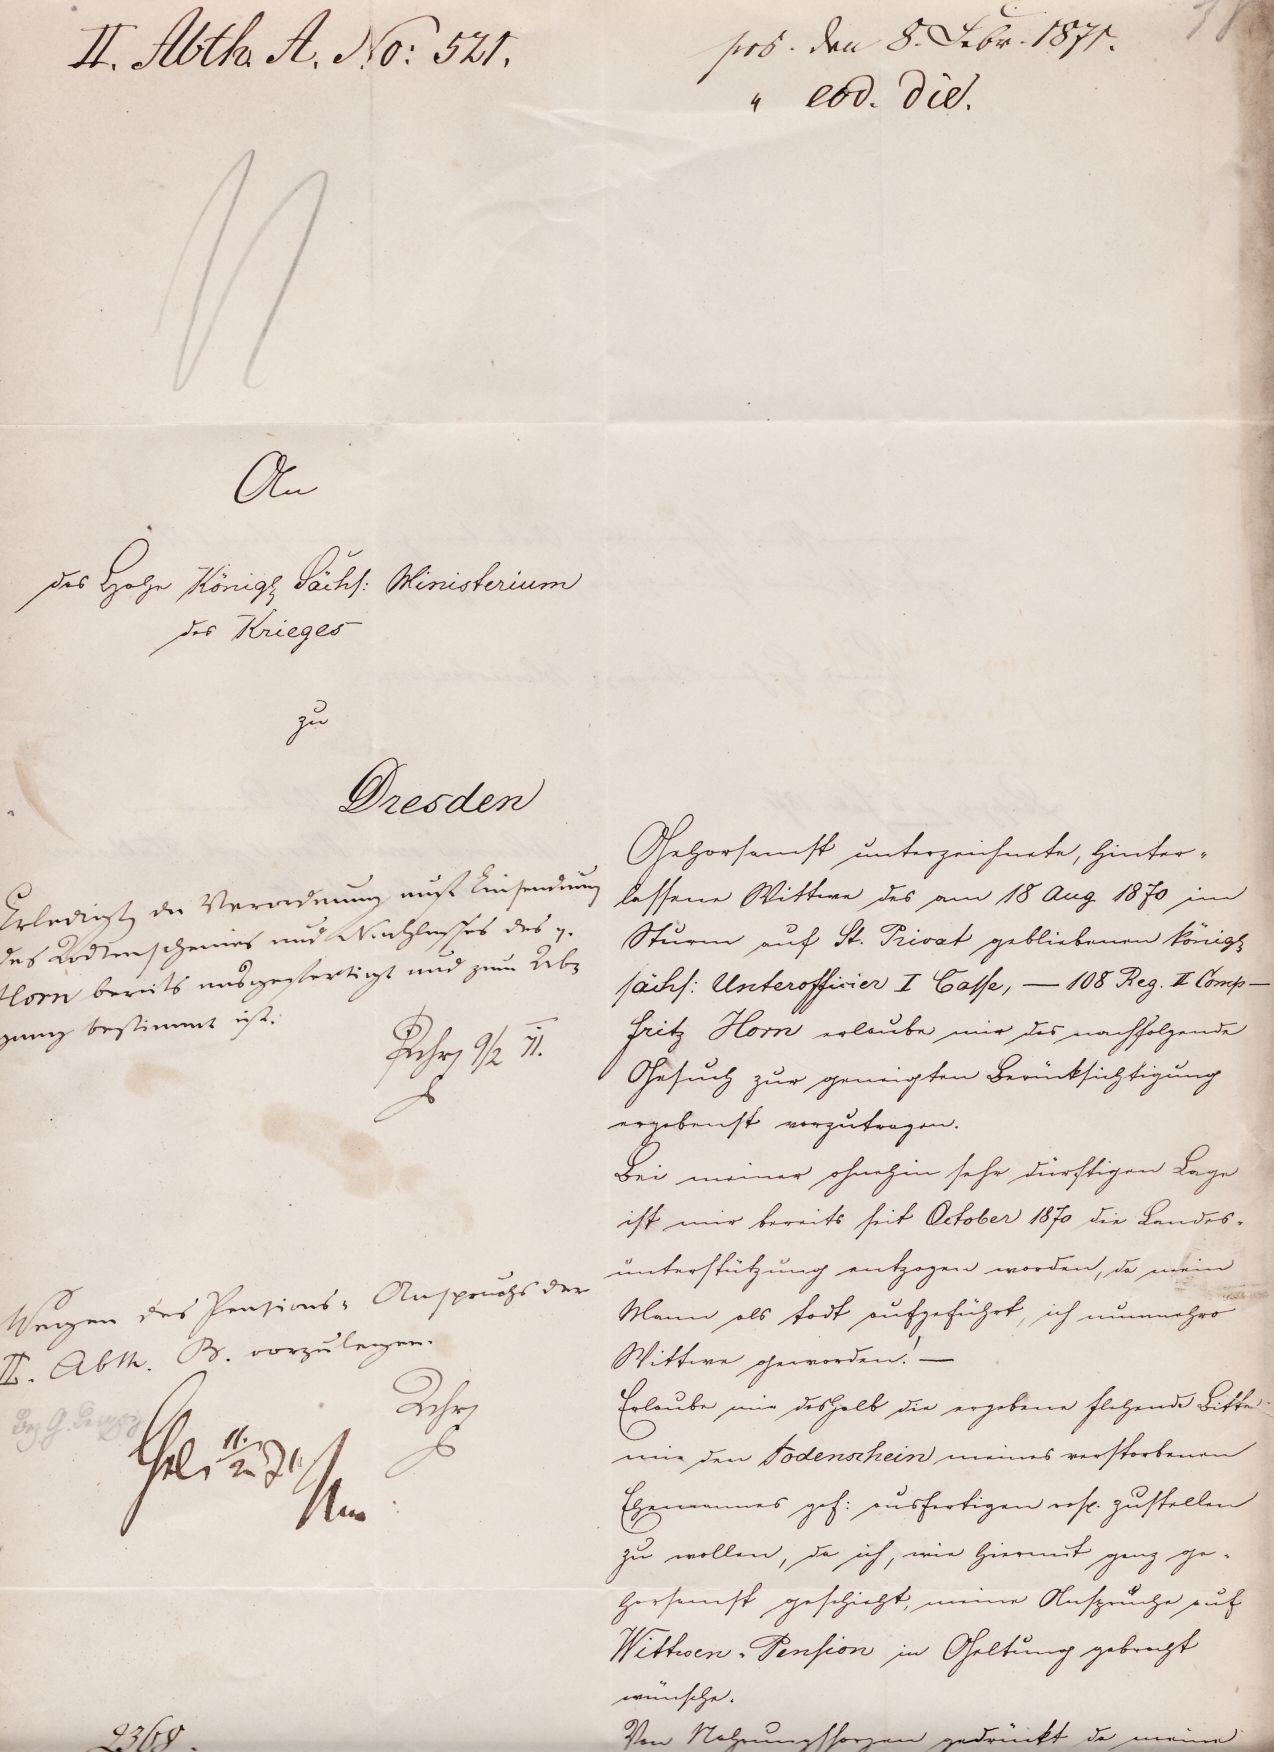 II. Abth. A. No: 521.
prs. den 8. Febr. 1871.
" eod. die.
An
das Hohe Königl Sächs: Ministerium
des Krieges
zu
Dresden
Erledigt, da Verordnung nebst Einsendung
des Todtenscheines und Nachlasses des p.
Horn bereits ausgefertigt und zum Ab=
gang bestimmt ist.
9/2 71.
Wegen des Pensions= Anspruchs der
II. Abth. B. vorzulegen.
11. 2. 71
2368.
Gehorsamst unterzeichnete, hinter=
lassene Wittwe des am 18 Aug 1870 im
Sturm auf St. Privat gebliebenen königl
sächs: Unterofficier I Casse, — 108 Reg. II Comp —
Fritz Horn erlaube mir das nachfolgende
Gesuch zur geneigten Berücksichtigung
ergebenst vorzutragen.
Bei meiner ohnehin sehr dürftigen Lage
ist mir bereits seit October 1870 die Landes=
unterstützung entzogen worden, da mein
Mann als todt aufgeführt, ich nunmehro
Wittwe geworden! —
Erlaube mir deshalb die ergebene flehende Bitte
mir den Todenschein meines verstorbenen
Ehemannes gef: ausfertigen resp. zustellen
zu wollen, da ich, wie hiermit ganz ge=
horsamst geschieht, meine Ansprüche auf
Wittwen=Pension in Geltung gebracht
wünsche.
Von Nahrungssorgen gedrückt da meine